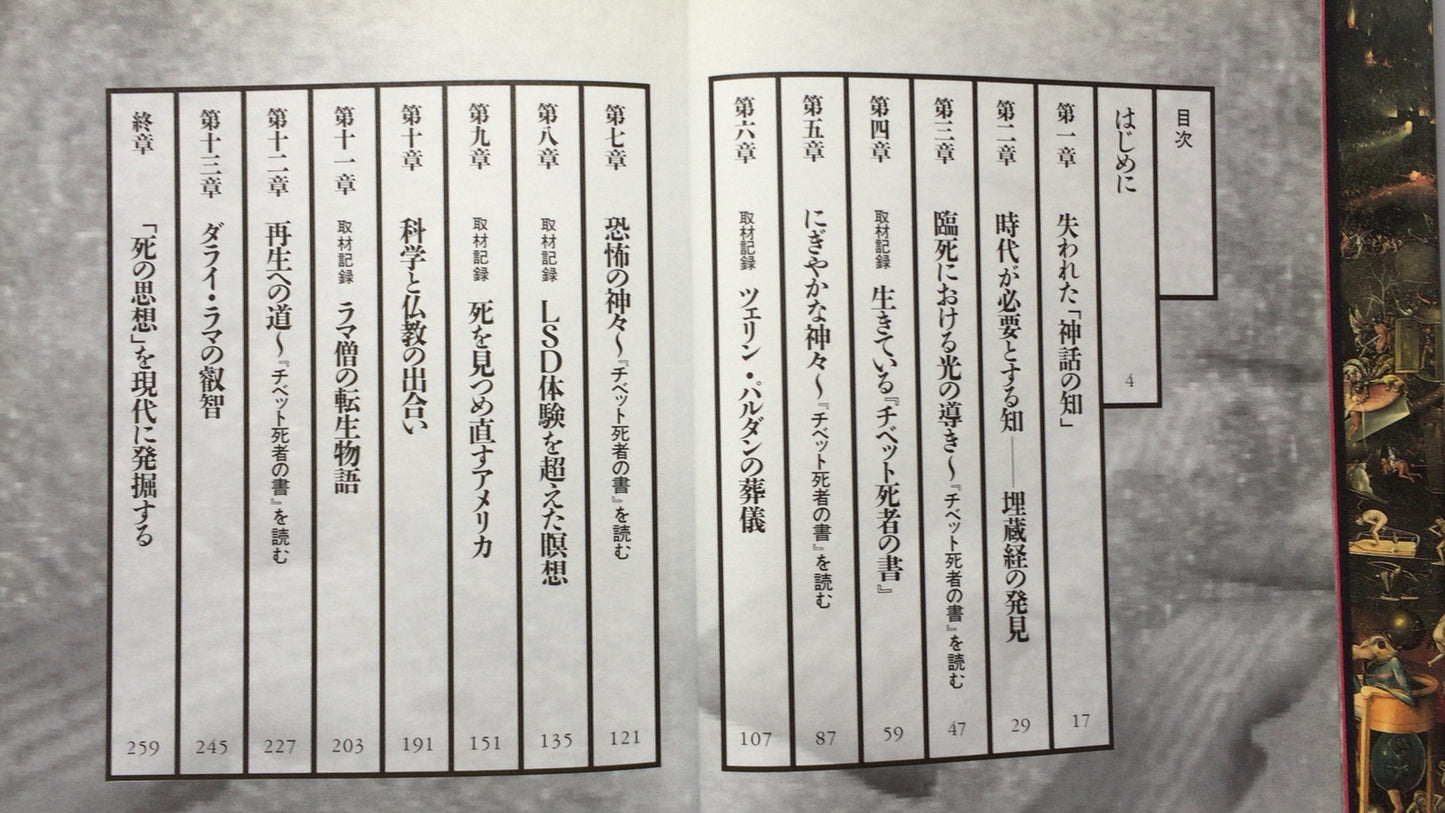 目次
はじめに 4
第一章 失われた「神話の知」 17
第二章 時代が必要とする知――埋蔵経の発見 29
第三章 臨死における光の導き〜『チベット死者の書』を読む 47
第四章 取材記録 生きている『チベット死者の書』 59
第五章 にぎやかな神々〜『チベット死者の書』を読む 87
第六章 取材記録 ツェリン・パルダンの葬儀 107
第七章 恐怖の神々〜『チベット死者の書』を読む 121
第八章 取材記録 LSD体験を超えた瞑想 135
第九章 取材記録 死を見つめ直すアメリカ 151
第十章 科学と仏教の出合い 191
第十一章 取材記録 ラマ僧の転生物語 203
第十二章 再生への道〜『チベット死者の書』を読む 227
第十三章 ダライ・ラマの叡智 245
終章 「死の思想」を現代に発掘する 259